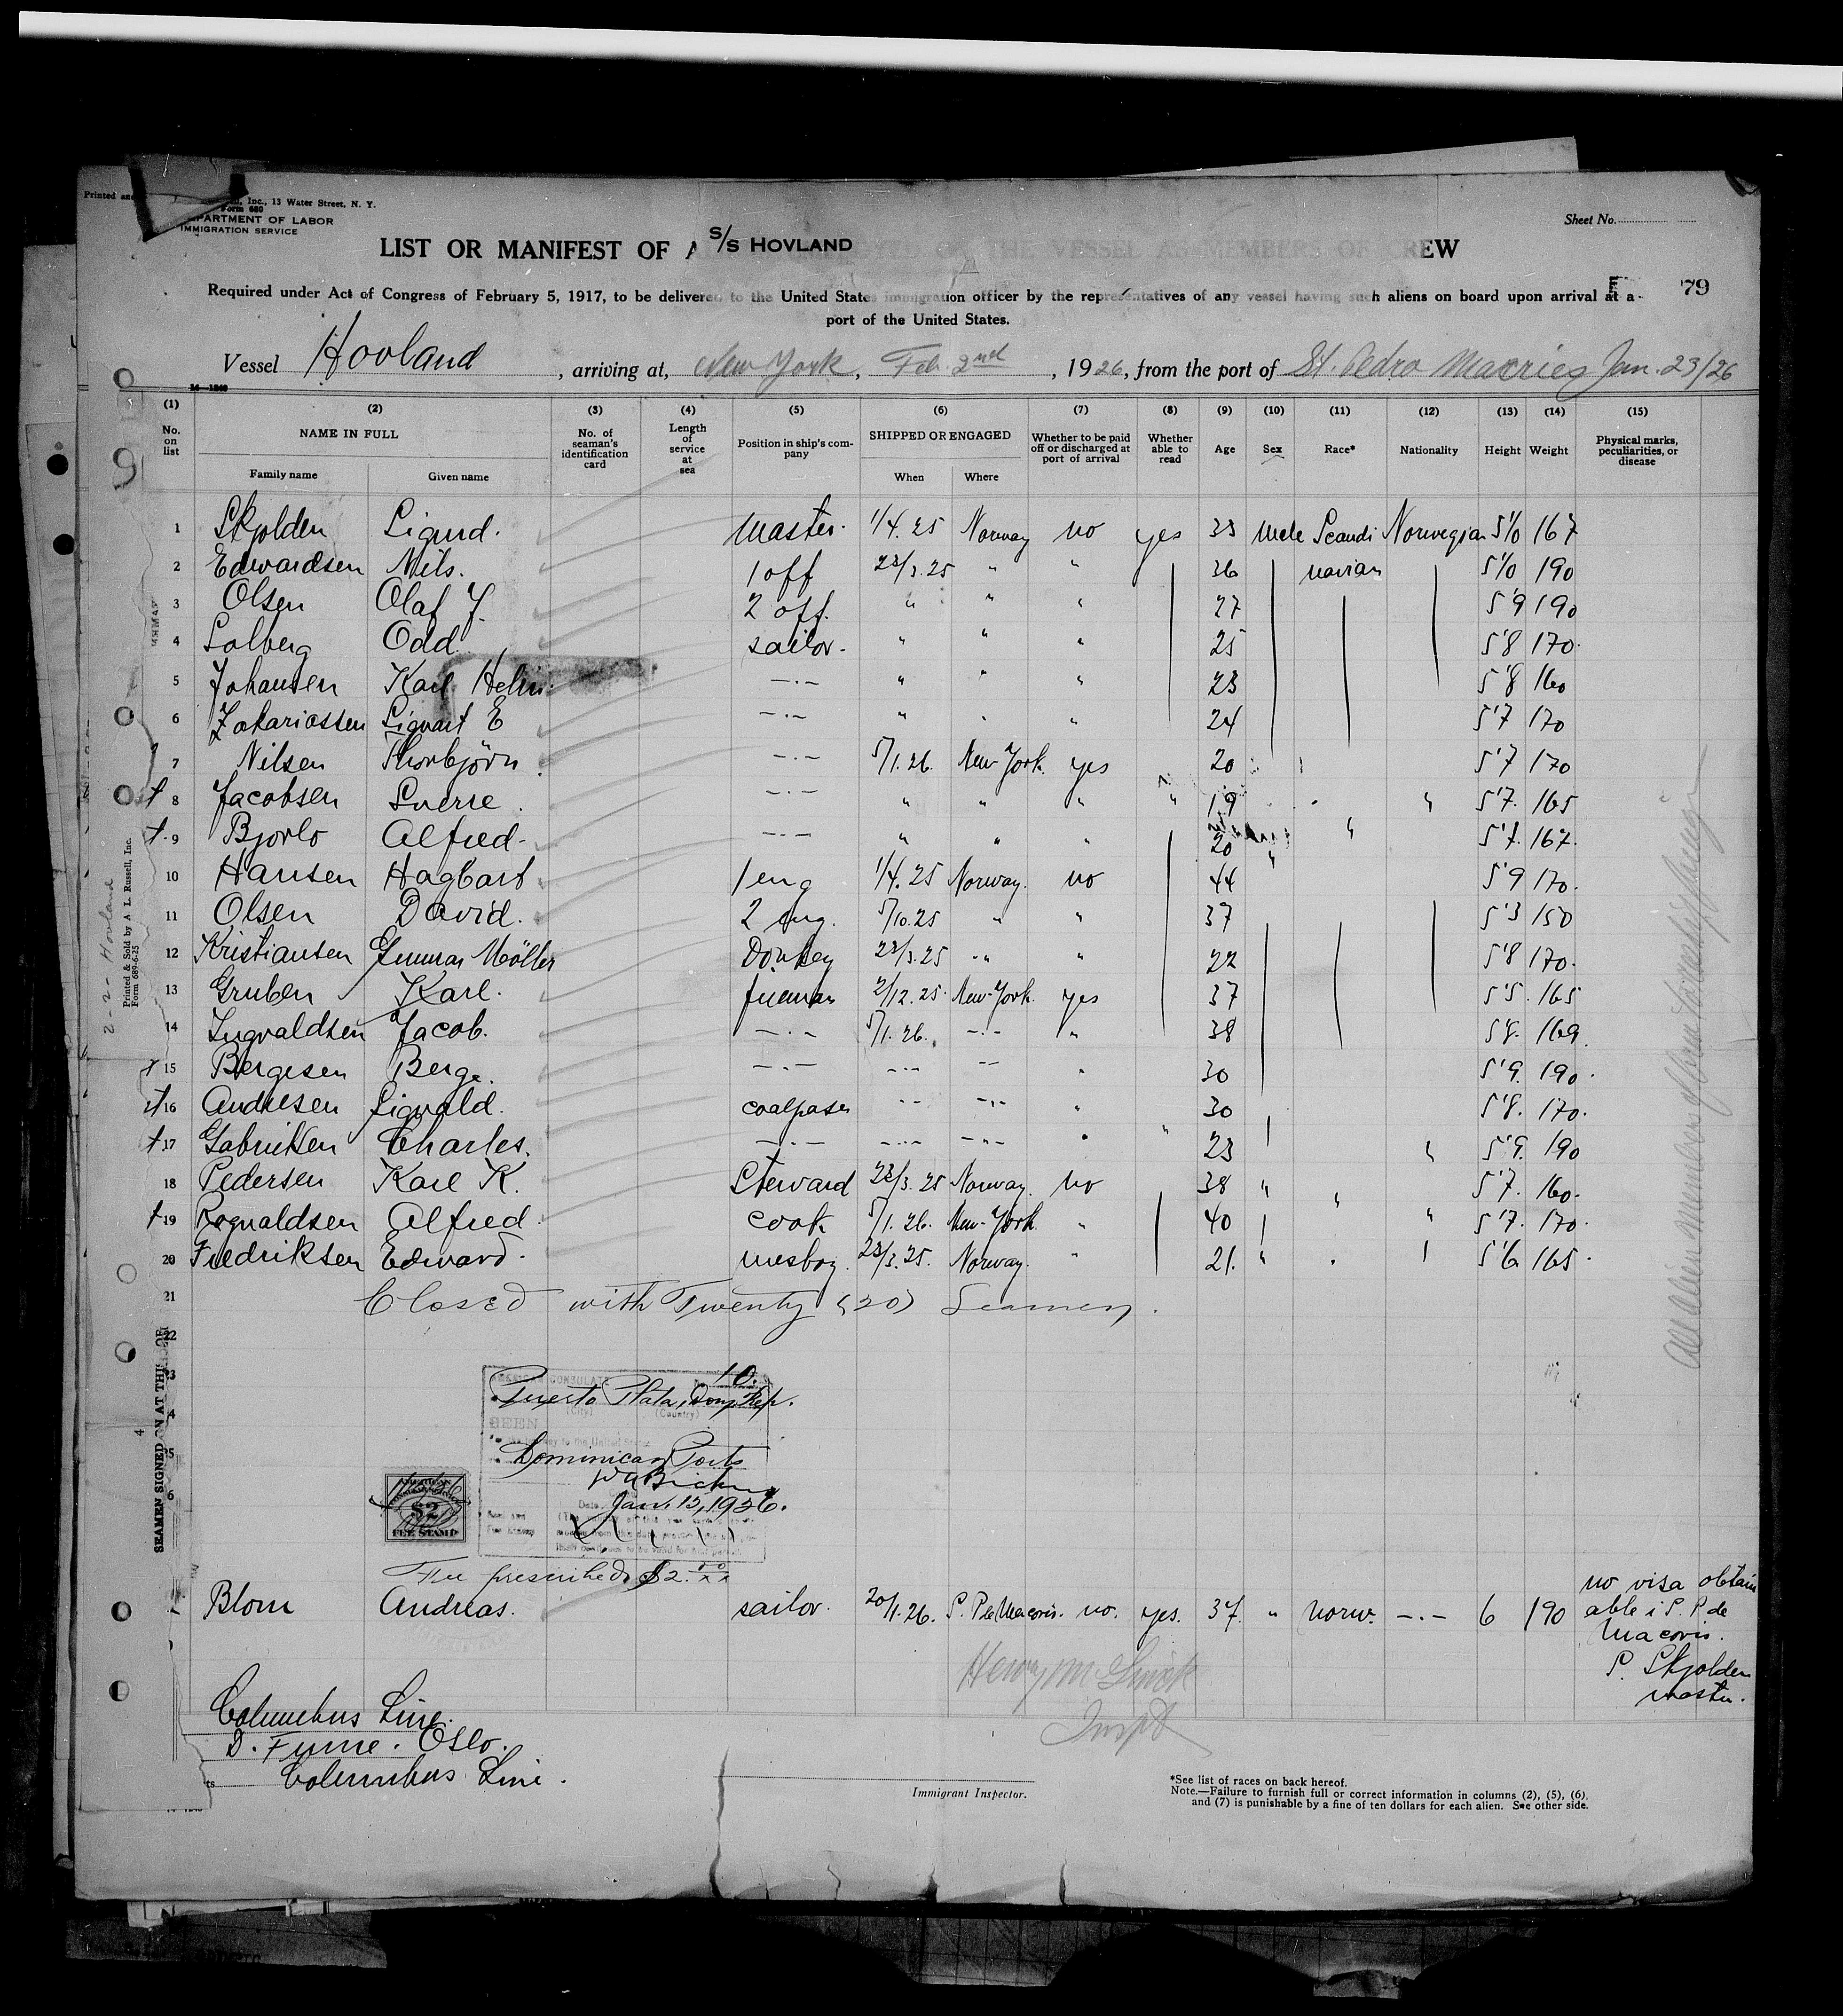 Inc., 13 Water Street, N. Y.
Form 680
DEPARTMENT OF LABOR
IMMIGRATION SERVICE
Sheet No.
LIST OR MANIFEST OF A S/S HOVLAND THE VESSEL AS MEMBERS OF CREW
Required under Act of Congress of February 5, 1917, to be delivered to the United States immigration officer by the representatives of any vessel having such aliens on board upon arrival at a
port of the United States.
79
Vessel Hovland, arriving at, New York, Feb. 2nd, 1926, from the port of St. Pedro Macries Jan. 23/26
(1) (2) (3) (4) (5) (6) (7) (8) (9) (10) (11) (12) (13) (14) (15)
No. on list NAME IN FULL Family name Given name No. of seaman's identification card Length of service at sea Position in ship's company SHIPPED OR ENGAGED When Where Whether to be paid off or discharged at port of arrival Whether able to read Age Sex Race* Nationality Height Weight Physical marks, peculiarities, or disease
1 Skjolden Sigurd. Master. 1/4.25 Norway no yes 33 Male Scandi Norwegian 5'10 167
2 Edwardsen Nils. 1 off 23/3.25 " " 36 navian 5'10 190
3 Olsen Olaf J. 2 off. " " " 27 5'9 190
4 Solberg Odd. sailor. " " " 25 5'8 170.
5 Johansen Karl Helm. —.— " " " 23 5'8 160
6 Zakariassen Sigvart E —.— " " " 24 5'7 170
7 Nilsen Thorbjörn. —.— 5/1.26. New-York. yes 20 5'7 170
8 Jacobsen Sverre. —.— " " " " 19 " 5'7. 165
9 Bjorlo Alfred. —.— " " " 20 " " 5'7. 167.
10 Hansen Hagbart 1 eng 1/4.25 Norway. no 44 5'9 170.
11 Olsen David. 2 eng. 5/10.25 " " 37 5'3 150
12 Kristiansen Gunnar Möller Donkey 23/3.25 " " 22 5'8 170.
13 Gruben Karl. fireman 2/12.25. New-York. yes 37 5'5. 165
14 Ingvaldsen Jacob. —.— 5/1.26. —.— " 38 5'8. 169.
15 Bergesen Berge. —.— —.— —— " 30 5'9. 190.
16 Andresen Sigvald. coalpaser —— —.— " 30 5'8. 170.
17 Gabrielsen Charles. —.— —.— —.— " " 23 " 5'9. 190
18 Pedersen Karl K. Steward 23/3.25 Norway. no 38 " " 5'7. 160.
19 Regnaldsen Alfred. cook 5/1.26. New-York. " 40 " 5'7. 170.
20 Fredriksen Edward. mesboy. 23/3.25. Norway. " 21. " " 5'6 165.
21 Closed with Twenty (20) Seamen.
22
AMERICAN CONSULATE No. 10.
Puerto Plata, Dom. Rep.
(City) (Country)
SEEN
Dominican Ports
Jan. 13, 1926.
$2
FEE STAMP
Fee prescribed, $2.
Blom Andreas. sailor. 20/1.26. S. P de Macoris. no. yes. 37. " norw. —.— 6 190 no visa obtain
able i S. P. de
Macoris.
S. Skjolden
master.
Henry
Inspt
Columbus Line.
Oslo.
Columbus Line.
Immigrant Inspector.
*See list of races on back hereof.
Note.—Failure to furnish full or correct information in columns (2), (5), (6),
and (7) is punishable by a fine of ten dollars for each alien. See other side.
Printed & Sold by A. L. Russell, Inc.
Form 689-6-25
2-2- Hovland
SEAMEN SIGNED ON AT THIS